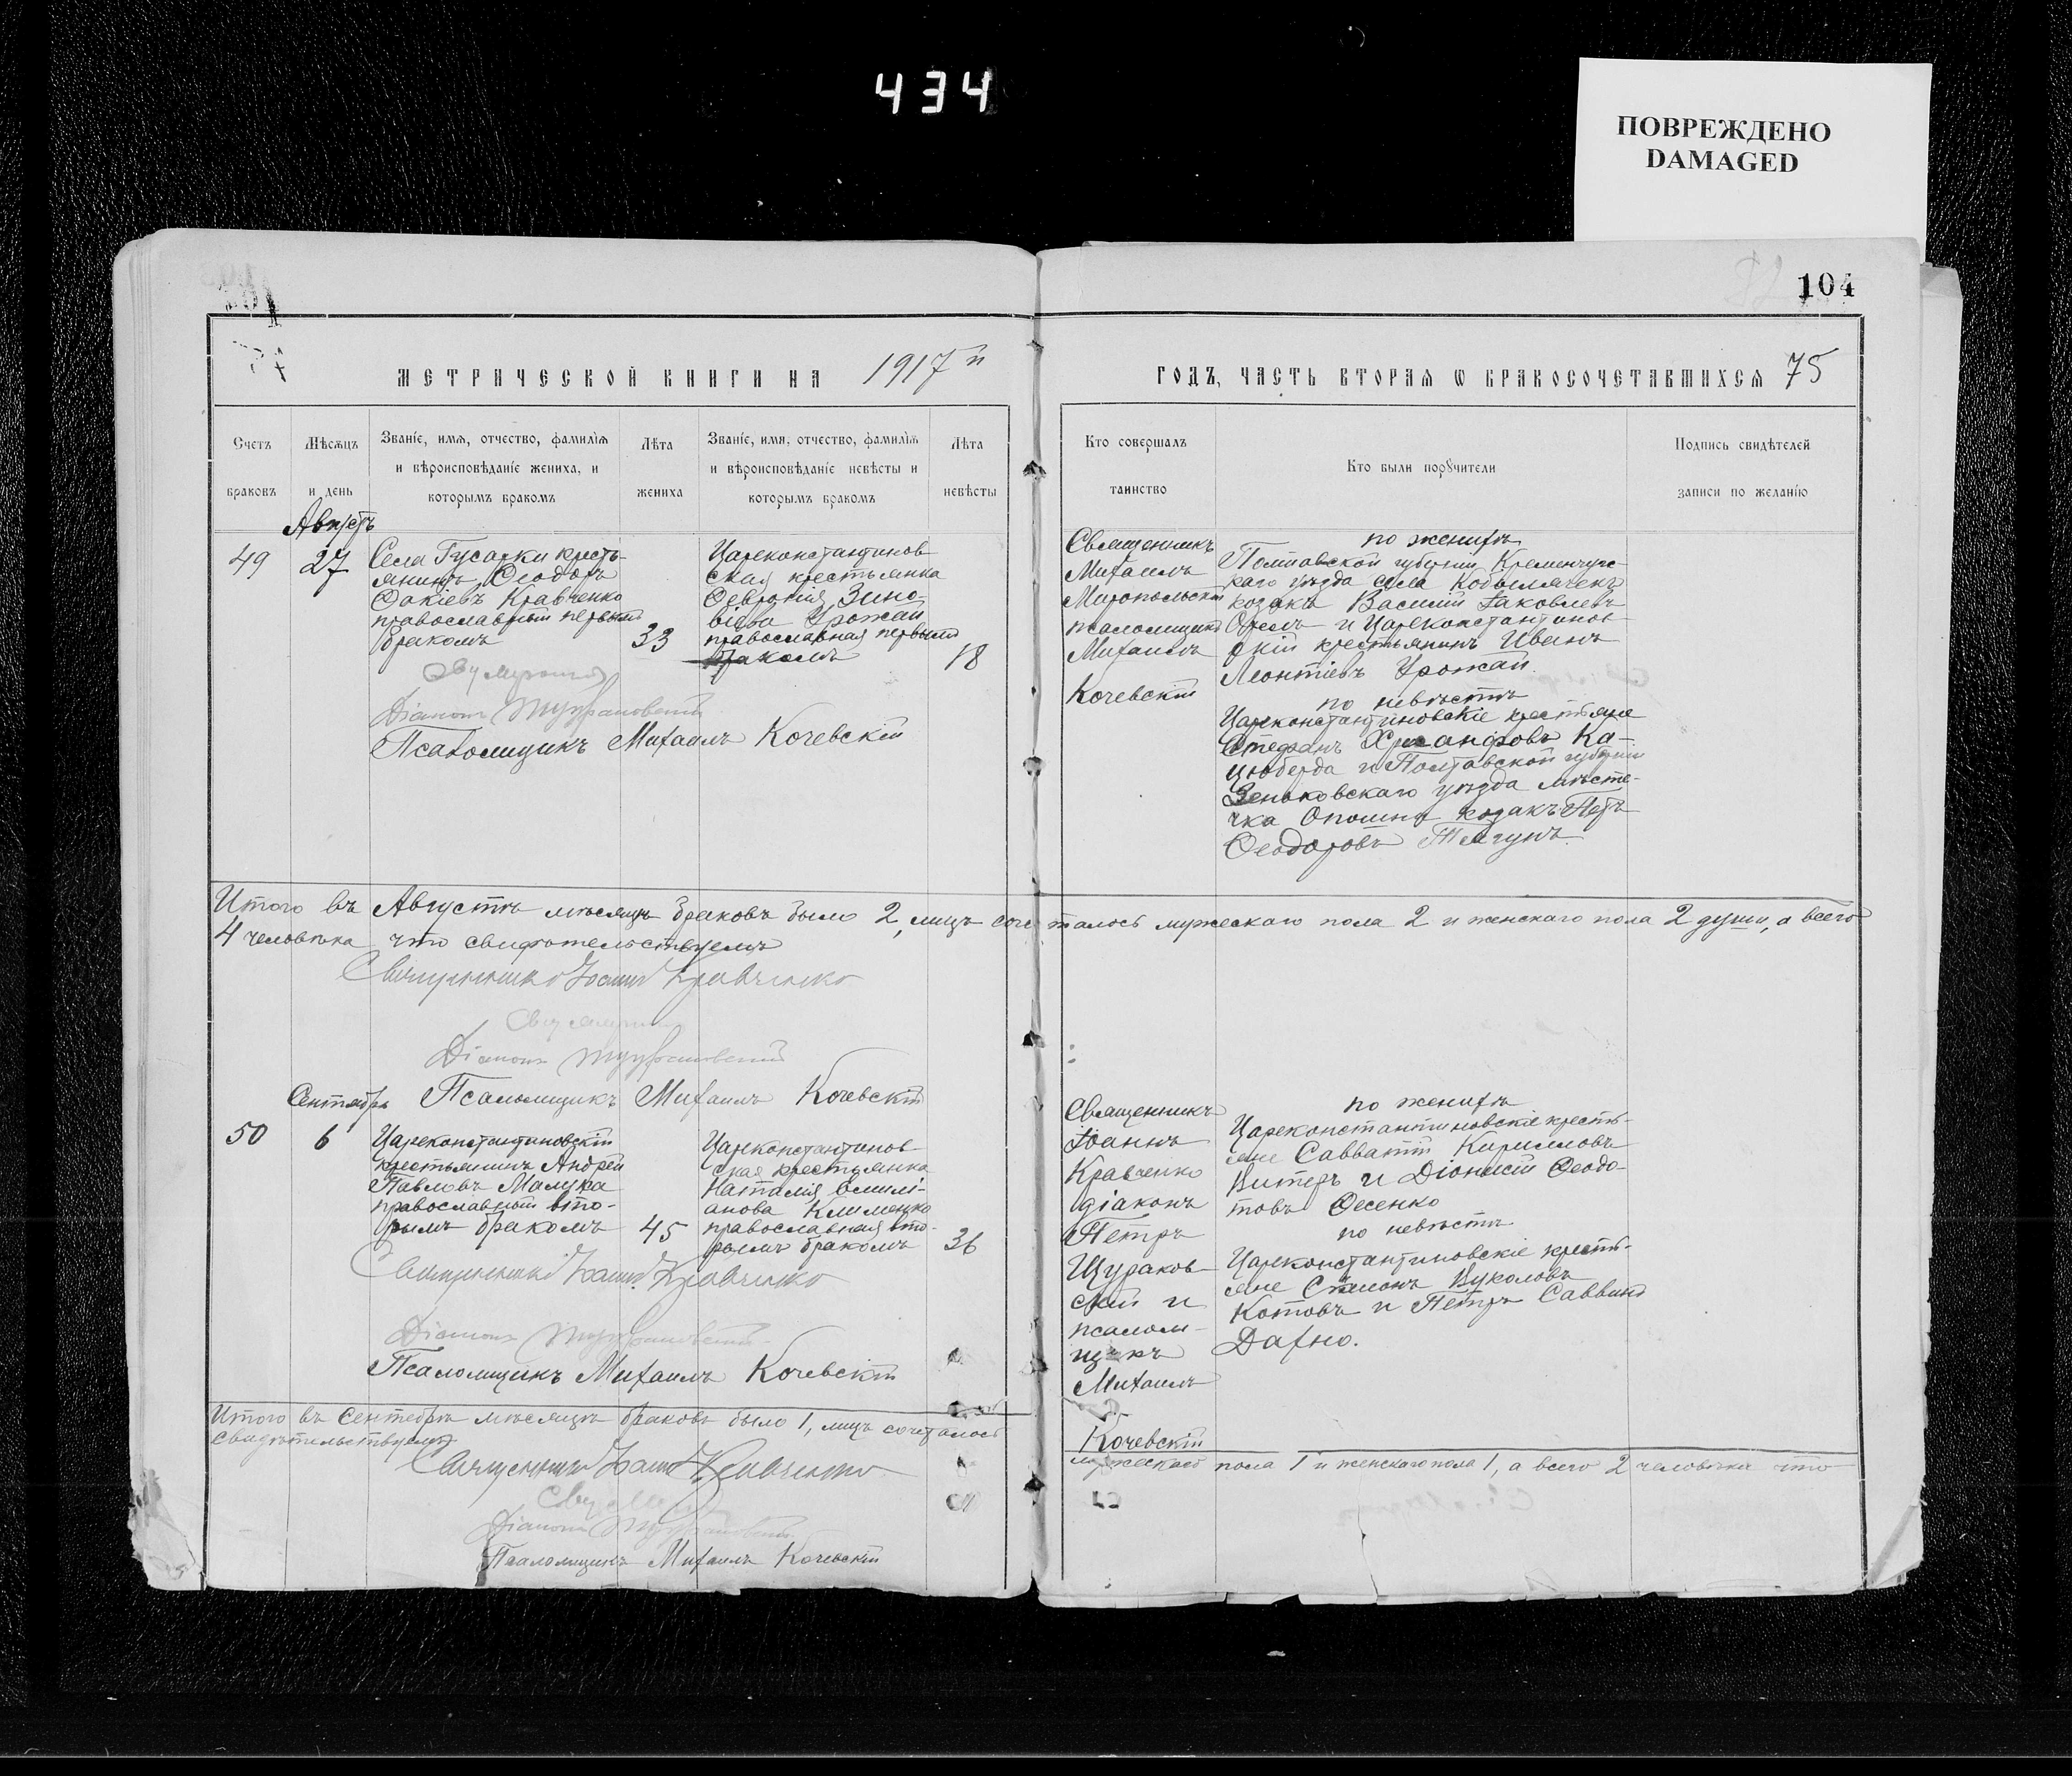 434
ПОВРЕЖДЕНО
DAMAGED
104
МЕТРИЧЕСКОЙ КНИГИ НА 1917й
ГОДЪ, ЧАСТЬ ВТОРАЯ Ѡ БРАКОСОЧЕТАВШИХСЯ 75
Счетъ
браковъ
Мѣсяцъ
и день
Званіе, имя, отчество, фамилія
и вѣроисповѣданіе жениха, и
которымъ бракомъ
Лѣта
жениха
Званіе, имя, отчество, фамилія
и вѣроисповѣданіе невѣсты и
которымъ бракомъ
Лѣта
невѣсты
Кто совершалъ
таинство
Кто были порꙋчители
Подпись свидѣтелей
записи по желанію
Августъ
49
27
Села Гусарки кресть-
янинъ Ѳеодоръ
Кравченко
православный первымъ
бракомъ
33
Цареконстантинов
ская крестьянка
Ѳевронія Зино-
віева Урожай
православная первымъ
бракомъ
18
Священникъ
Михаилъ
Миропольскій
псаломщикъ
Михаилъ
Кочевскій
по женихѣ
Полтавской губерніи Кременчугс-
каго уѣзда села Кобылячекъ
козакъ Василій Іаковлевъ
Орелъ и Цареконстантинов-
скій крестьянинъ Иванъ
Леонтіевъ Урожай.
по невѣстѣ
Цареконстантиновскіе крестьяне
Стефанъ Хрисанфовъ Ка-
цюберда и Полтавской губерніи
Зеньковскаго уѣзда мѣсте-
чка Опошни козакъ Петръ
Ѳеодоровъ Тягунъ.
Діаконъ
Псаломщикъ Михаилъ Кочевскій
Итого въ Августѣ мѣсяцѣ браковъ было 2, лицъ сочеталось мужескаго пола 2 и женскаго пола 2 души, а всего
4 человѣка что свидѣтельствуемъ
Священникъ Іоаннъ Кравченко
Діаконъ
Псаломщикъ Михаилъ Кочевскій
Сентябрь
50
6
Цареконстантиновскій
крестьянинъ Андрей
Павловъ Малуха
православный вто-
рымъ бракомъ
45
Цареконстантинов
ская крестьянка
Наталія Емилі-
анова Клименко
православная вто-
рымъ бракомъ
36
Священникъ
Іоаннъ
Кравченко
діаконъ
Петръ
Щураков
скій и
псалом-
щикъ
Михаилъ
Кочевскій
по женихѣ
Цареконстантиновскіе кресть-
яне Савватій Кирилловъ
Витеръ и Діонисій Ѳеодо-
товъ Ѳесенко
по невѣстѣ
Цареконстантиновскіе кресть-
яне Симонъ Вуколовъ
Котовъ и Петръ Саввинъ
Дахно.
Священникъ Іоаннъ Кравченко
Діаконъ
Псаломщикъ Михаилъ Кочевскій
Итого въ Сентябрѣ мѣсяцѣ браковъ было 1, лицъ сочеталось мужескаго пола 1 и женскаго пола 1, а всего 2 человѣка что
свидѣтельствуемъ
Священникъ Іоаннъ Кравченко
Діаконъ
Псаломщикъ Михаилъ Кочевскій